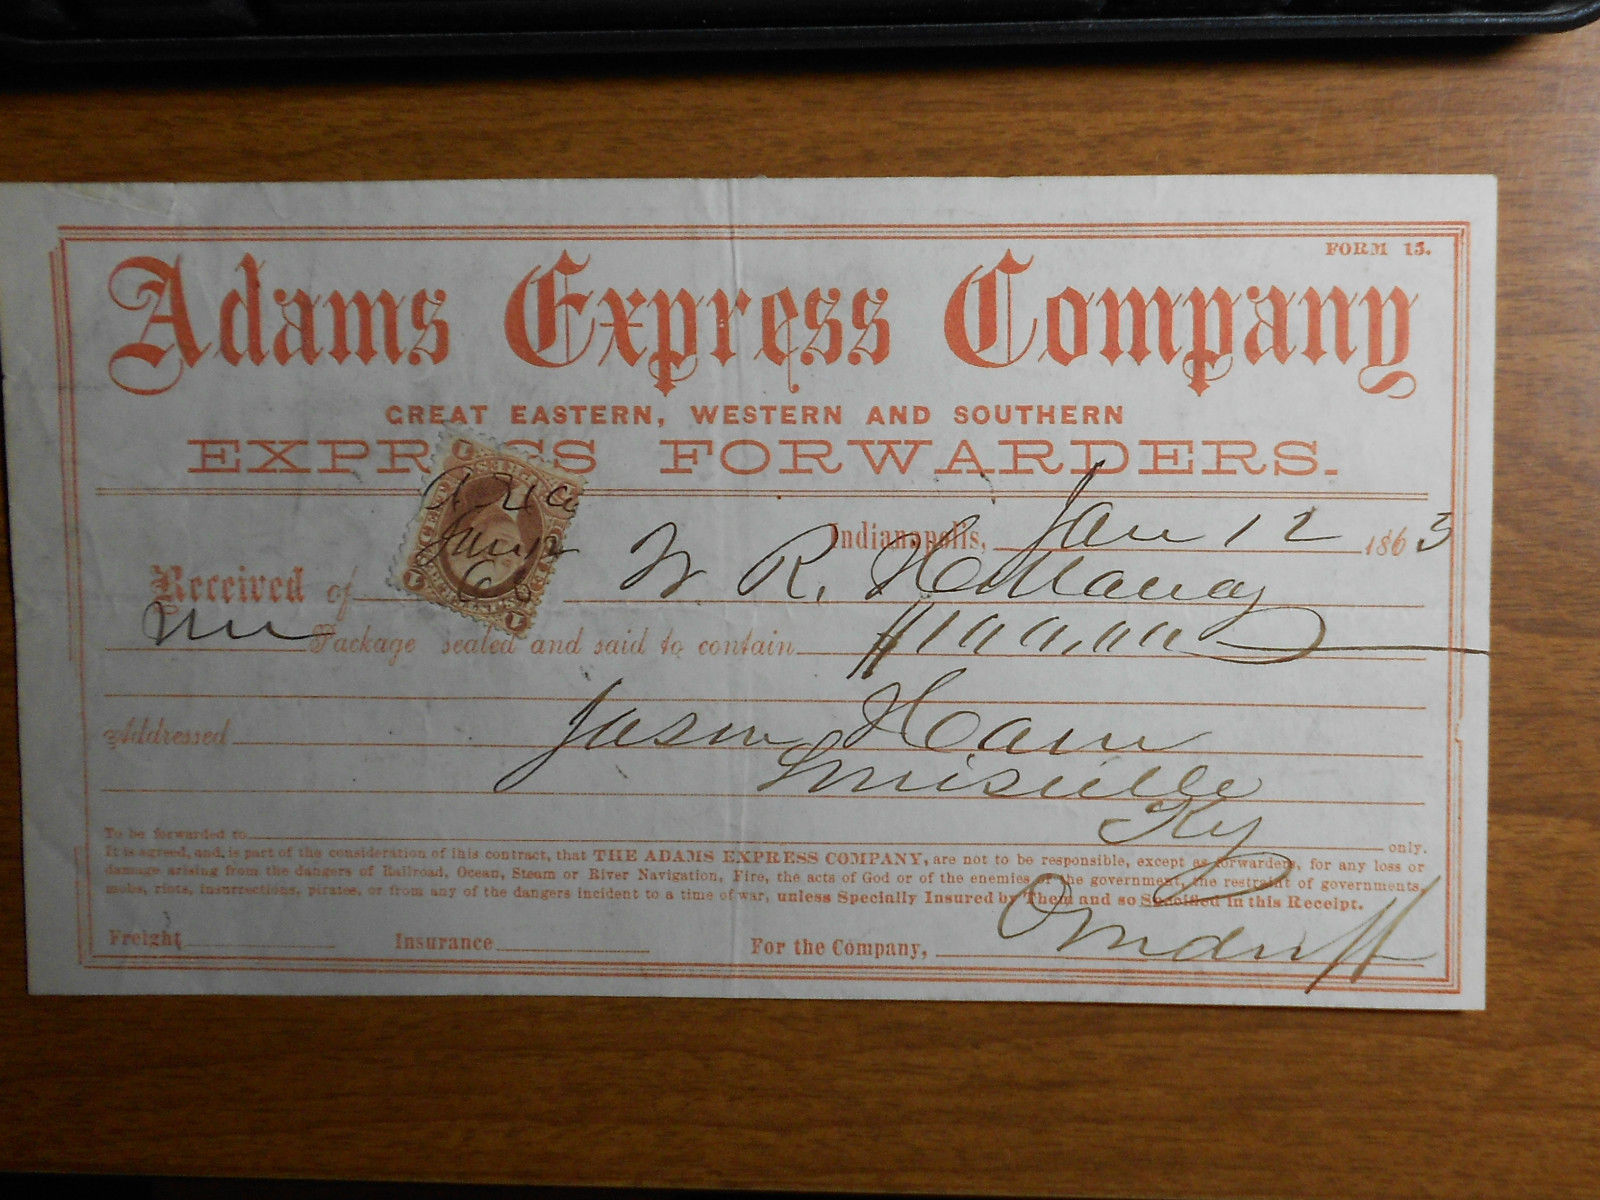 FORM 15.
Adams Express Company
GREAT EASTERN, WESTERN AND SOUTHERN
EXPRESS FORWARDERS.
Indianapolis, Jan 12 1863
Received of W. R. Holloway
One Package sealed and said to contain $100.00
Addressed Jason Ham
Louisville
Ky
To be forwarded to only.
It is agreed, and, is part of the consideration of this contract, that THE ADAMS EXPRESS COMPANY, are not to be responsible, except as forwarders, for any loss or
damage arising from the dangers of Railroad, Ocean, Steam or River Navigation, Fire, the acts of God or of the enemies of the government, the restraint of governments,
mobs, riots, insurrections, pirates, or from any of the dangers incident to a time of war, unless Specially Insured by Them and so Specified in this Receipt.
Freight Insurance For the Company, Woodruff